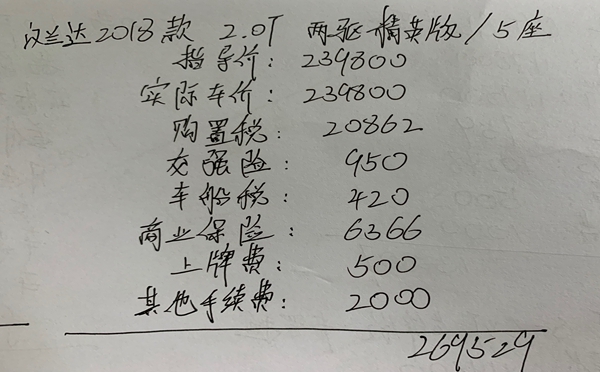 汉兰达2018款 2.0T 两驱精英版/5座
指导价: 239800
实际车价: 239800
购置税: 20862
交强险: 950
车船税: 420
商业保险: 6366
上牌费: 500
其他手续费: 2000
269529